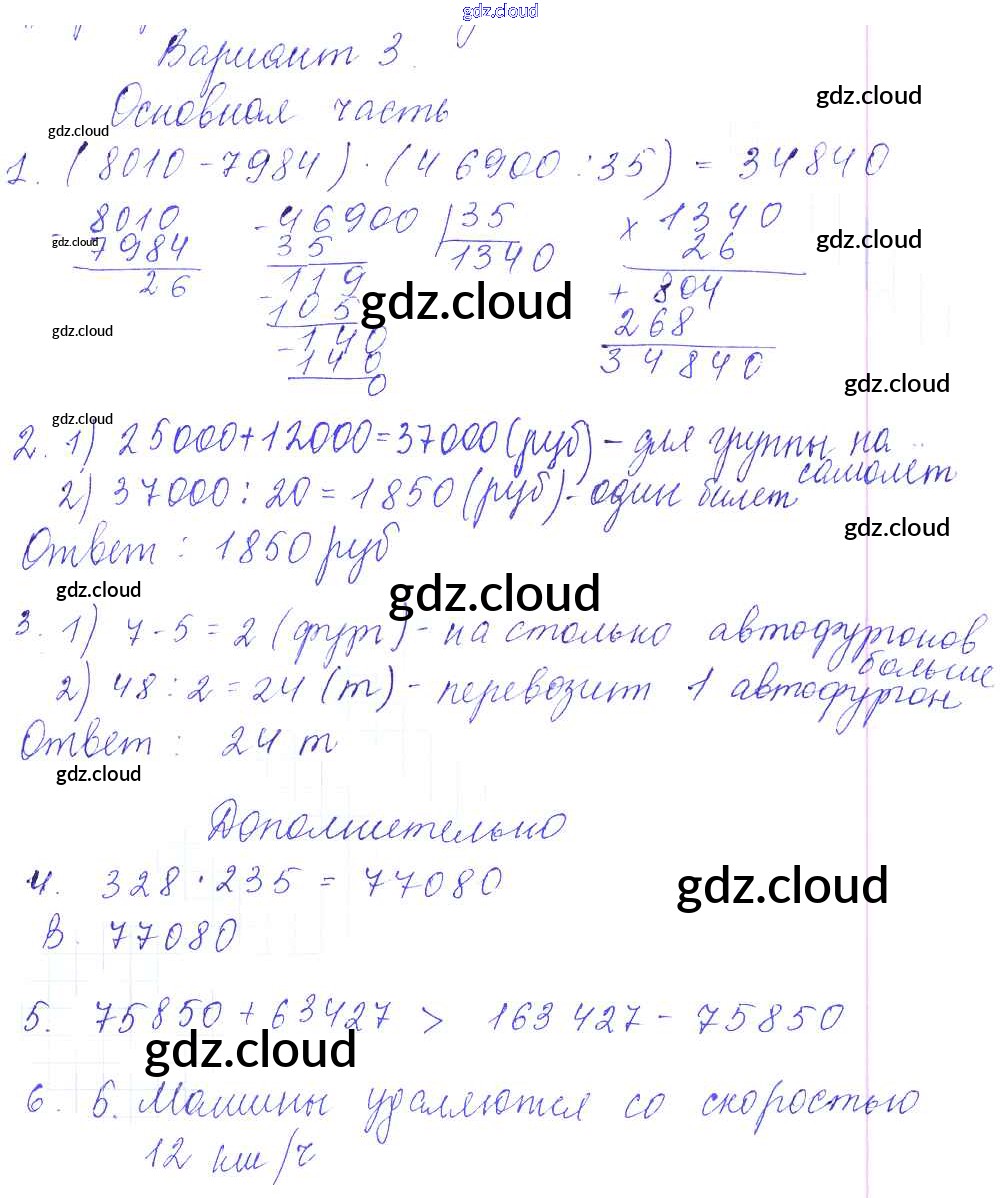 gdz.cloud
Вариант 3.
Основная часть
gdz.cloud
gdz.cloud
1. (8010 - 7984) · (46900 : 35) = 34840
- 8010 - 46900 | 35 × 1340
7984 35 1340 26
gdz.cloud gdz.cloud
26 - 119 + 804
105 268
gdz.cloud
gdz.cloud gdz.cloud
- 140 34840
140
0
gdz.cloud
gdz.cloud
2. 1) 25000 + 12000 = 37000 (руб) - для группы на
самолёт
2) 37000 : 20 = 1850 (руб) - один билет
gdz.cloud
Ответ : 1850 руб
gdz.cloud gdz.cloud gdz.cloud
3. 1) 7 - 5 = 2 (фург) - на столько автофургонов
больше
2) 48 : 2 = 24 (т) - перевозит 1 автофургон
Ответ : 24 т
gdz.cloud
Дополнительно
4. 328 · 235 = 77080
gdz.cloud
В. 77080
5. 75850 + 63427 > 163427 - 75850
gdz.cloud
6. Б. Машины удаляются со скоростью
12 км/ч